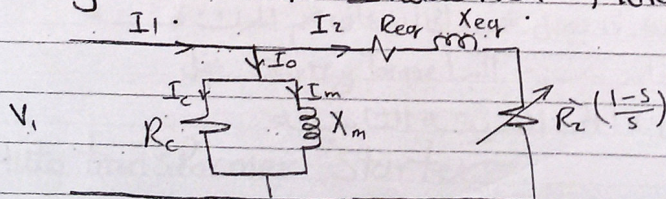 I1. I2 Req Xeq.
I0
Ic Im
V1 Rc Xm R2' (1-s/s)